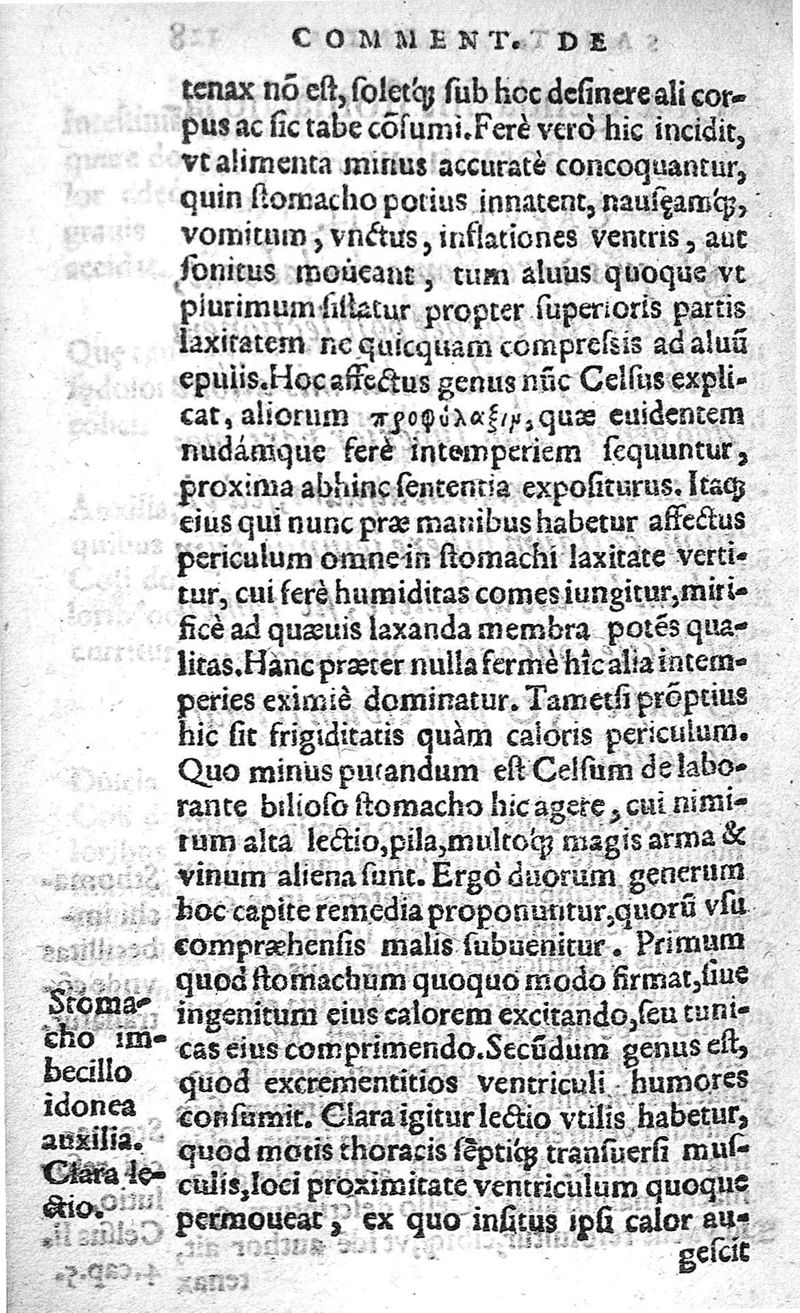 COMMENT. DE
tenax nõ est, soletq́ꝫ sub hoc desinere ali cor-
pus ac sic tabe cõsumi. Ferè verò hic incidit,
vt alimenta minus accuratè concoquantur,
quin stomacho potius innatent, nausęamq́ꝫ,
vomitum, vnctus, inflationes ventris, aut
sonitus moueant, tum aluus quoque vt
plurimum sistatur propter superioris partis
laxitatem ne quicquam compressis ad aluũ
epulis. Hoc affectus genus nũc Celsus expli-
cat, aliorum προφύλαξιμ, quæ euidentem
nudámque ferè intemperiem sequuntur,
proxima abhinc sententia expositurus. Itaqꝫ
eius qui nunc præ manibus habetur affectus
periculum omne in stomachi laxitate verti-
tur, cui ferè humiditas comes iungitur, miri-
ficè ad quæuis laxanda membra potẽs qua-
litas. Hanc præter nulla fermè hîc alia intem-
peries eximiè dominatur. Tametsi prõptius
hic sit frigiditatis quàm caloris periculum.
Quo minus putandum est Celsum de labo-
rante bilioso stomacho hic agere, cui nimi-
rum alta lectio, pila, multoq́ꝫ magis arma &
vinum aliena sunt. Ergò duorum generum
hoc capite remedia proponuntur, quorũ vsu
compræhensis malis subuenitur. Primum
quod stomachum quoquo modo firmat, siue
ingenitum eius calorem excitando, seu tuni-
cas eius comprimendo. Secũdum genus est,
quod excrementitios ventriculi humores
consumit. Clara igitur lectio vtilis habetur,
quod motis thoracis sẽptiq́ꝫ transuersi mus-
culis, loci proximitate ventriculum quoque
permoueat, ex quo insitus ipsi calor au-
gescit
Stoma-
cho im-
becillo
idonea
auxilia.
Clara le-
ctio.